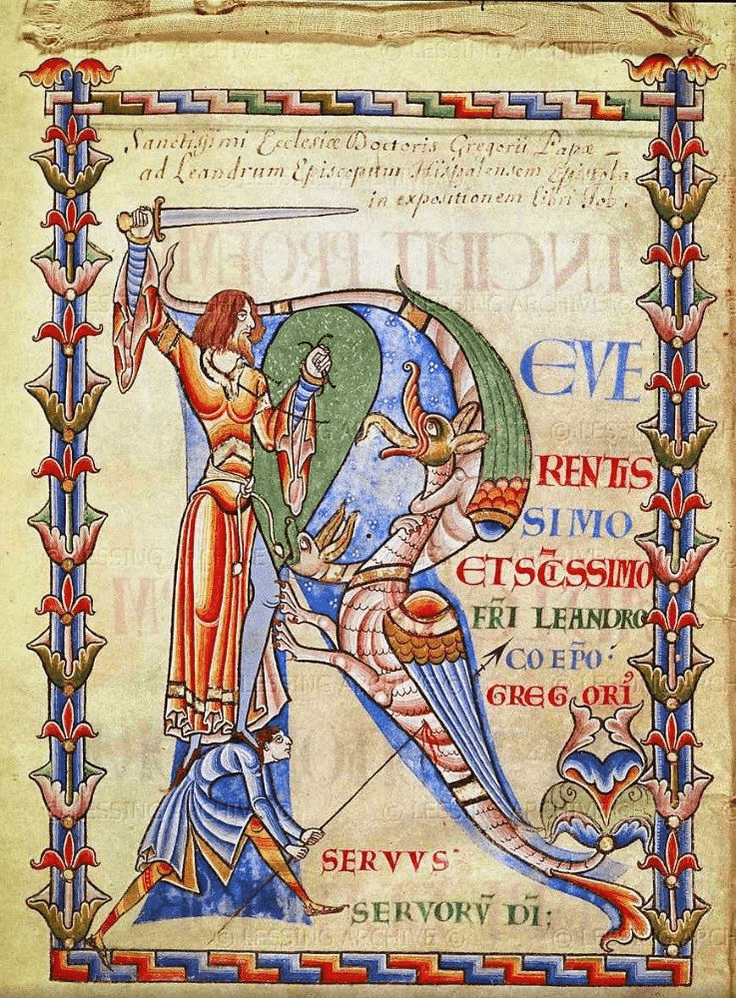 Sanctissimi Ecclesiæ Doctoris Gregorii Papæ
ad Leandrum Episcopum Hispalensem Epistola
in expositionem libri Job.
REVE
RENTIS
SIMO
ET SC̄ISSIMO
FR̄I LEANDRO
COEP̄O·
GREGORI᾽
SERVVS·
SERVORV̄ D̄I;